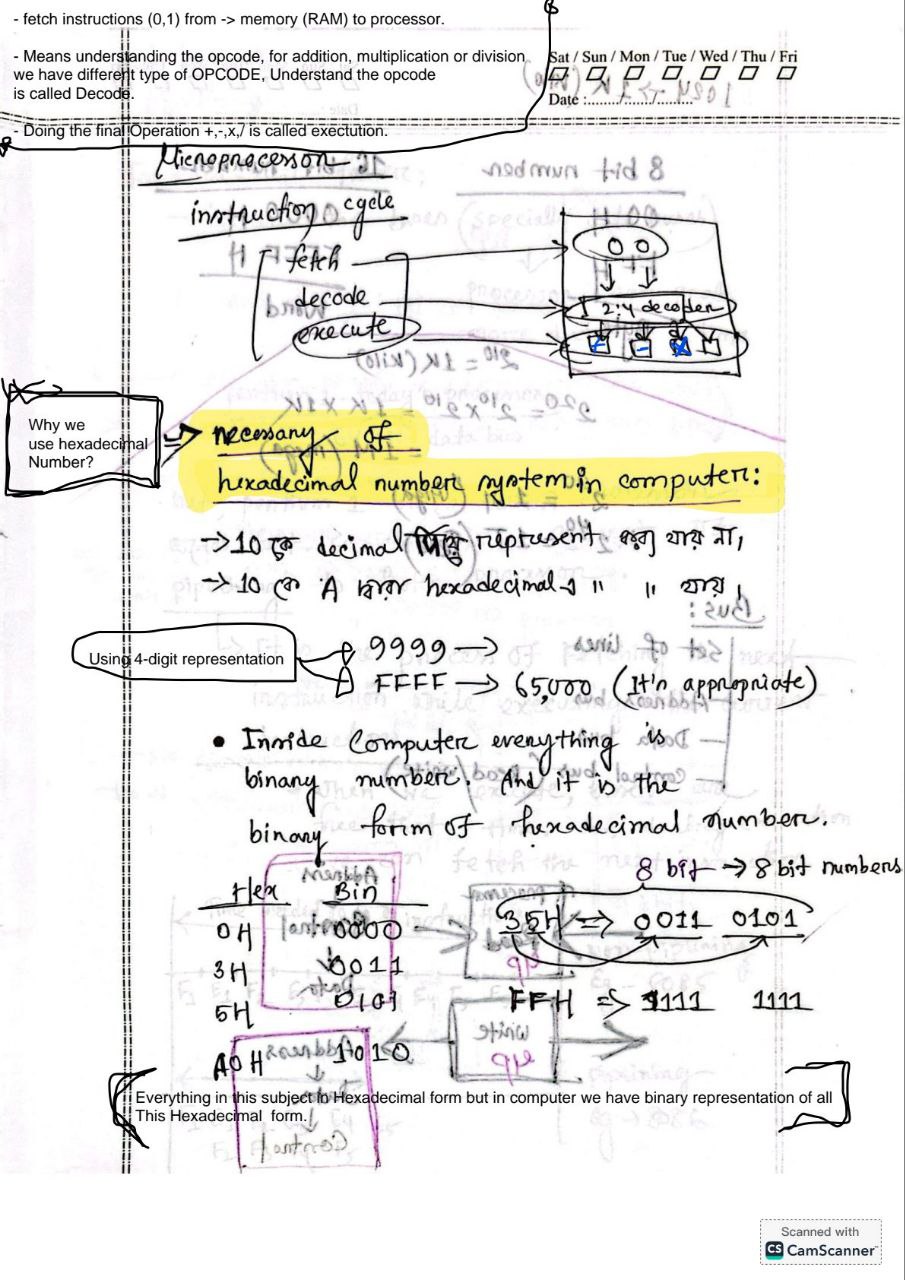 - fetch instructions (0,1) from -> memory (RAM) to processor.
- Means understanding the opcode, for addition, multiplication or division
we have different type of OPCODE, Understand the opcode
is called Decode.
- Doing the final Operation +,-,x,/ is called exectution.
Sat / Sun / Mon / Tue / Wed / Thu / Fri
Date :......../......../........
Microprocessor
instruction cycle
fetch
decode
execute
0 0
2:4 decoder
Why we
use hexadecimal
Number?
necessary of
hexadecimal number system in computer:
→ 10 কে decimal দিয়ে represent করা যায় না,
→ 10 কে A দ্বারা hexadecimal এ " " যায়,
Using 4-digit representation
9999 →
FFFF → 65,000 (It's appropriate)
• Inside Computer everything is
binary number. And it is the
binary form of hexadecimal number.
8 bit → 8 bit numbers
Hex Bin
0H 0000
3H 0011
5H 0101
A0H 1010
35H => 0011 0101
FFH => 1111 1111
Everything in this subject in Hexadecimal form but in computer we have binary representation of all
This Hexadecimal form.
Scanned with
CS CamScanner